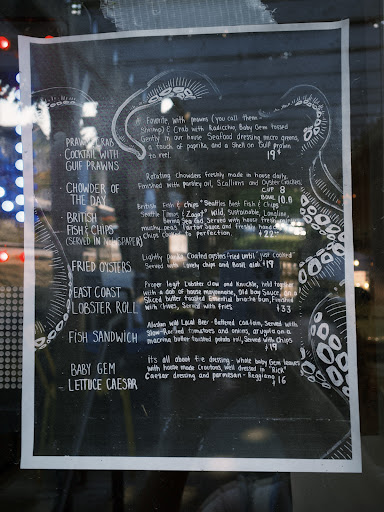 PRAWN & CRAB
COCKTAIL WITH
GULF PRAWNS
A Favorite, with prawns (you call them
Shrimp) & Crab with Radicchio, Baby Gem tossed
Gently in our house Seafood dressing micro greens,
a touch of paprika, and a Shell on Gulf prawn
to reel. 19
CHOWDER OF
THE DAY
Rotating Chowders freshly made in house daily.
Finished with parsley oil, Scallions and Oyster Crackers
CUP 8
BOWL 10.0
BRITISH
FISH & CHIPS
(SERVED IN NEWSPAPER)
British Fish & Chips "Seattles Best Fish & Chips"
Seattle Times & "Zagat" Wild, Sustainable, Longline,
Bering Sea Cod, Served with fresh
mushy peas Tartar Sauce and freshly hand cut
Chips Cooked to perfection. 22
FRIED OYSTERS
Lightly Panko Coated oysters fried until "just cooked"
Served with Lovely chips and Basil aioli 19
EAST COAST
LOBSTER ROLL
Proper legit Lobster Claw and Knuckle, held together
with a dab of house mayonnaise, Old bay Sauce, on a
Sliced butter toasted Essential brioche bun, finished
with Chives, Served with fries. $33
FISH SANDWICH
Alaskan wild Local Beer-Battered cod loin, Served with
Slow-Roasted tomatoes and onions, arugula on a
Macrina butter toasted potato roll, Served with Chips
$19
BABY GEM
LETTUCE CAESAR
It's all about the dressing - whole baby Gem leaves
with house made Croutons, well dressed in "Rick"
Caesar dressing and parmesan - Reggiano 16